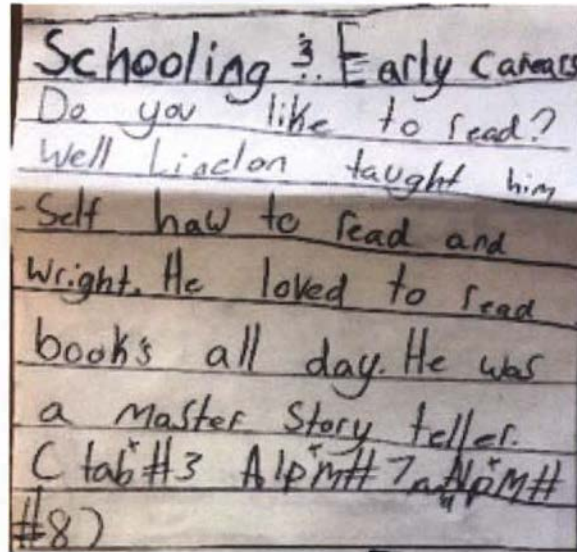 Schooling & Early Carears
Do you like to read?
Well Linclon taught him
-Self haw to read and
Wright. He loved to read
book's all day. He was
a Master Story teller.
( tab #3 AlpM# 7 AlpM#
#8)